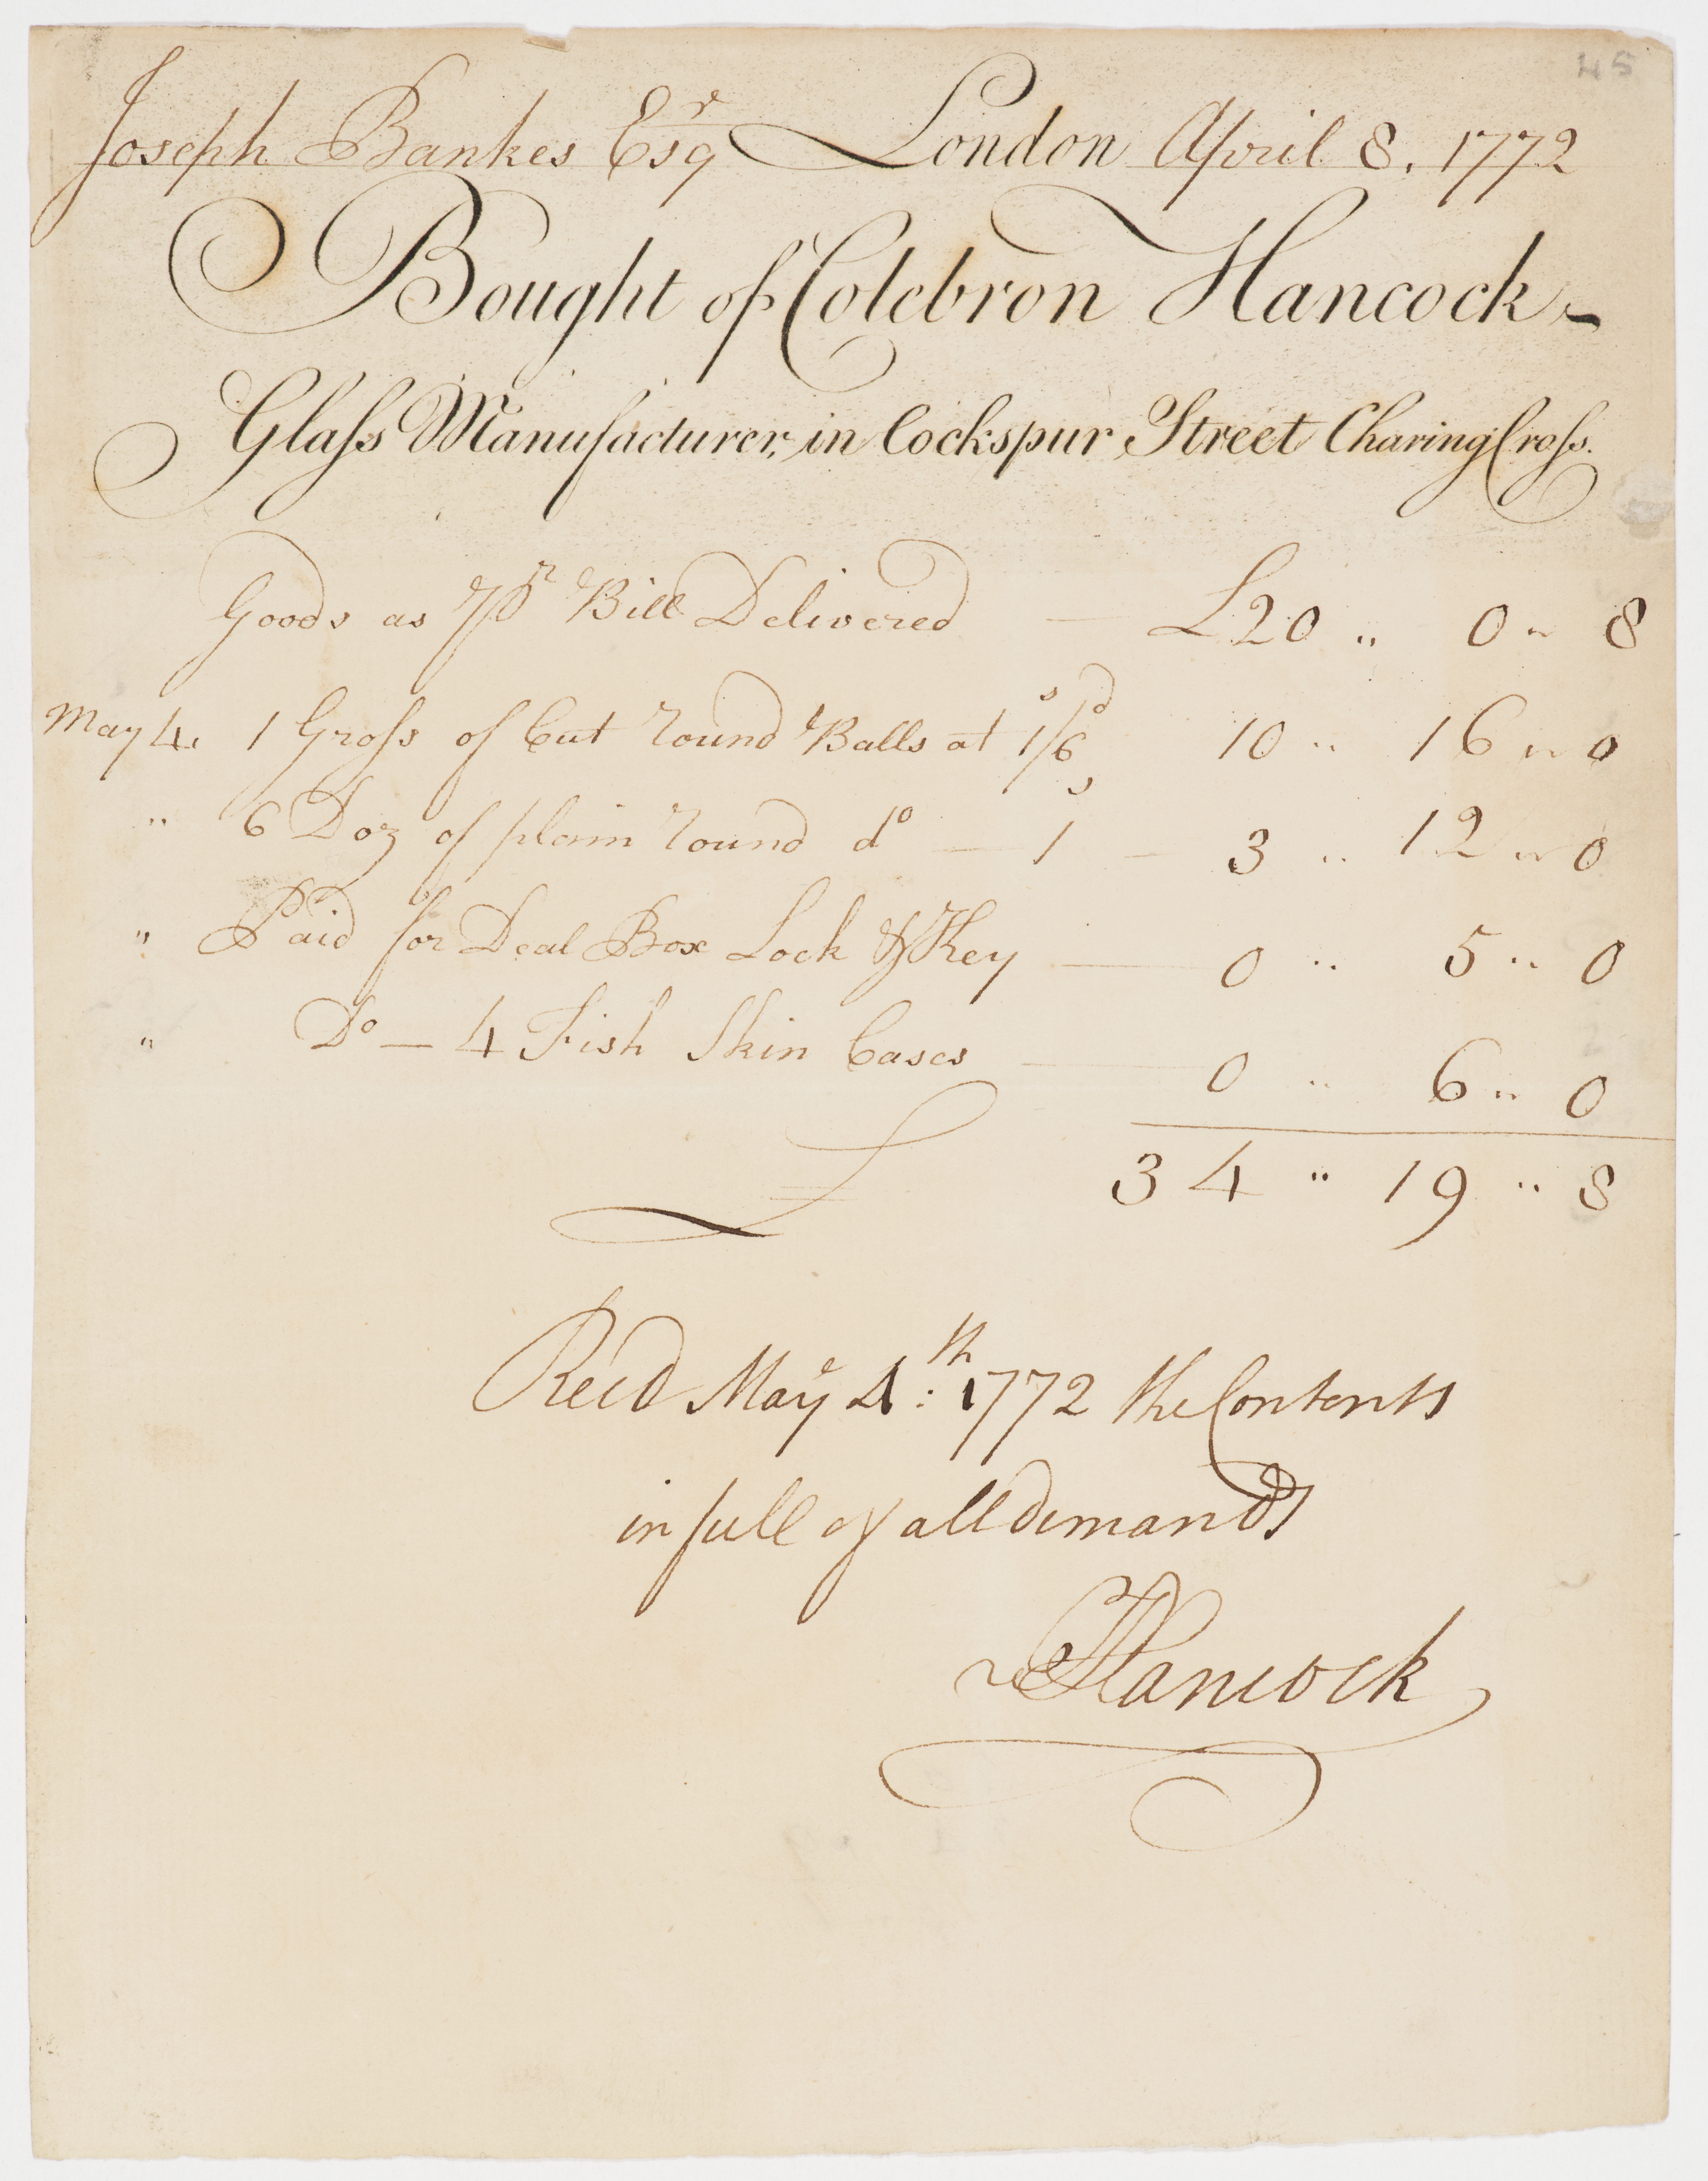 45
Joseph Bankes Esqr London April 8. 1772
Bought of Colebron Hancock
Glaſs Manufacturer, in Cockspur Street Charing Croſs.
Goods as pr Bill Delivered — £20 " 0 " 8
May 4. 1 Groſs of Cut round Balls at 1s/6d 10 " 16 " 0
" 6 Doz of plain round do — 1s — 3 " 12 " 0
" Paid for Deal Box Lock & Key — 0 " 5 " 0
" Do — 4 Fish Skin Cases — 0 " 6 " 0
£ 34 " 19 " 8
Recd May 4th: 1772 the Contents
in full of all demands
CHancock